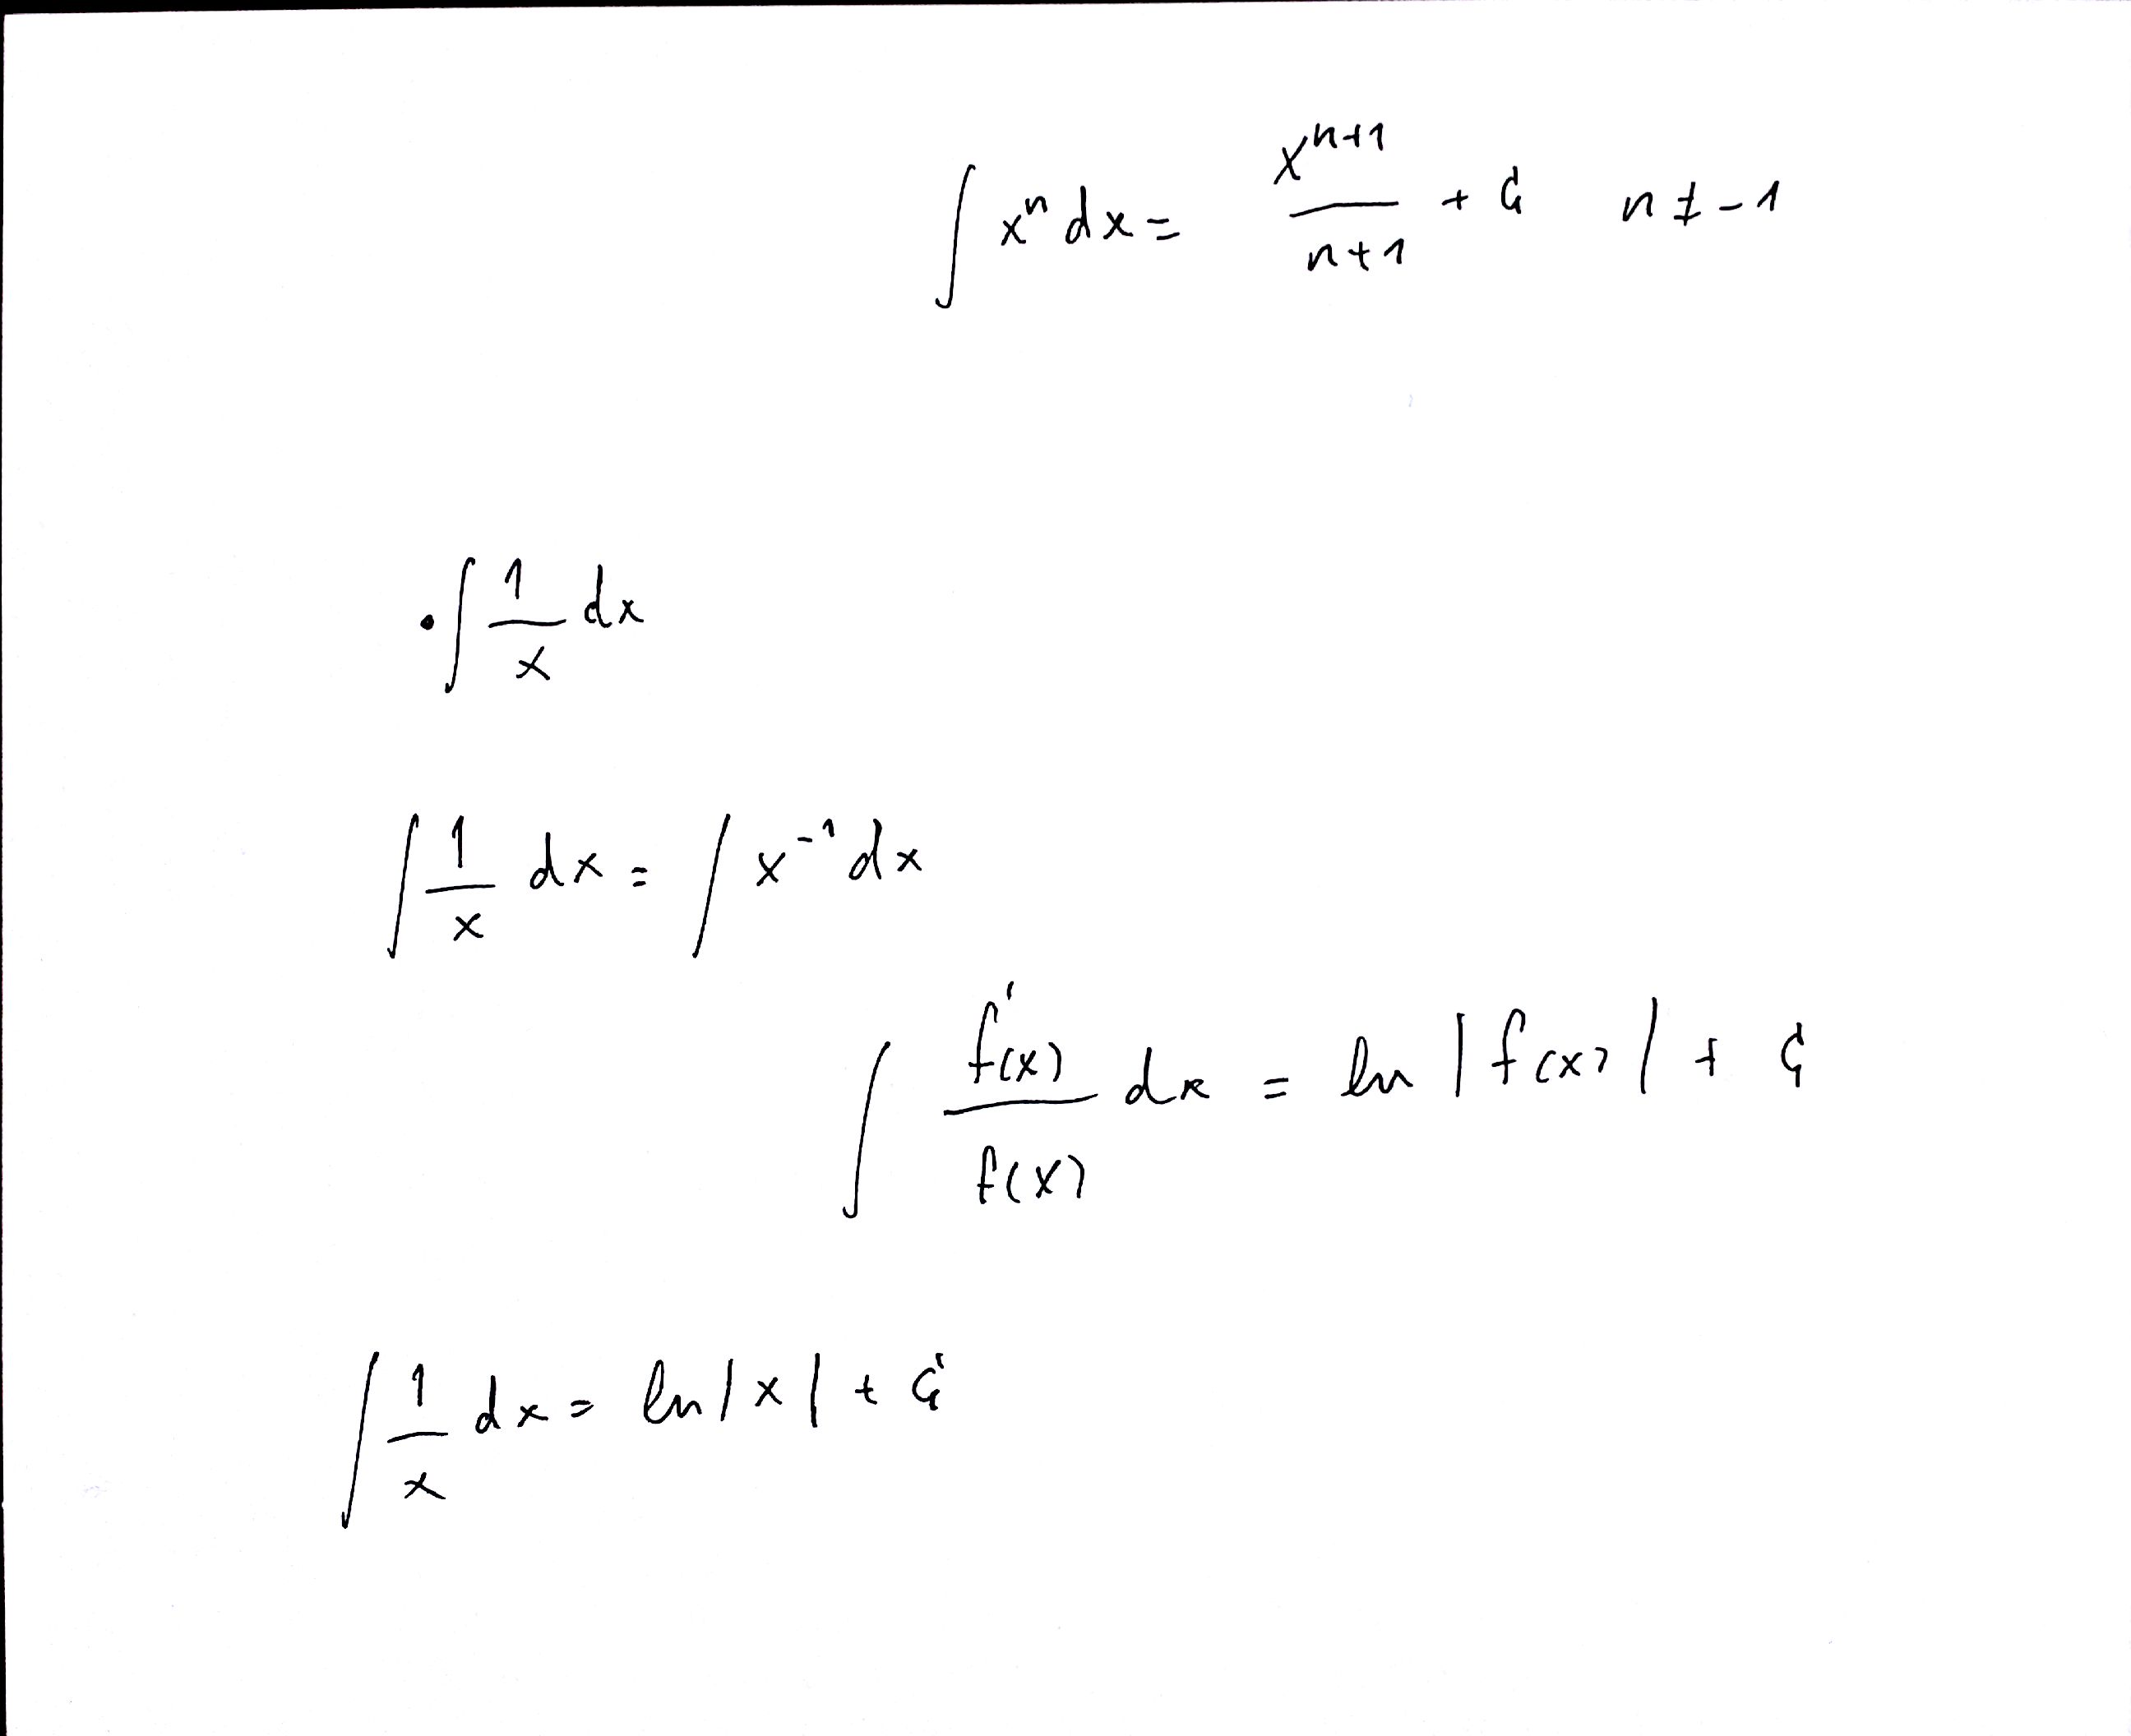 ∫ xⁿ dx = xⁿ⁺¹ / n+1 + C n ≠ -1
• ∫ 1/x dx
∫ 1/x dx = ∫ x⁻¹ dx
∫ f'(x) / f(x) dx = ln |f(x)| + C
∫ 1/x dx = ln |x| + C